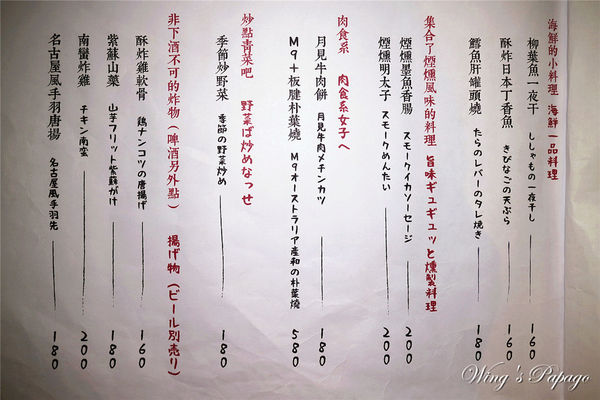 海鮮的小料理 海鮮一品料理
柳葉魚一夜干 ししゃもの一夜干し 160
酥炸日本丁香魚 きびなごの天ぷら 160
鱈魚肝罐頭燒 たらのレバーのタレ焼き 180
集合了煙燻風味的料理 旨味ギュギュッと燻製料理
煙燻墨魚香腸 スモークイカソーセージ 200
煙燻明太子 スモークめんたい 200
肉食系 肉食系女子へ
月見牛肉餅 月見牛肉メチンカツ 180
M9+板腱朴葉燒 M9オーストラリア産和の朴葉燒 580
炒點青菜吧 野菜ば炒めなっせ
季節炒野菜 季節の野菜炒め 180
非下酒不可的炸物(啤酒另外點) 揚げ物(ビール別売り)
酥炸雞軟骨 鶏ナンコツの唐揚げ 160
紫蘇山藥 山芋フリット紫蘇がけ 180
南蠻炸雞 チキン南蛮 200
名古屋風手羽唐揚 名古屋風手羽先 180
Wing's Papago